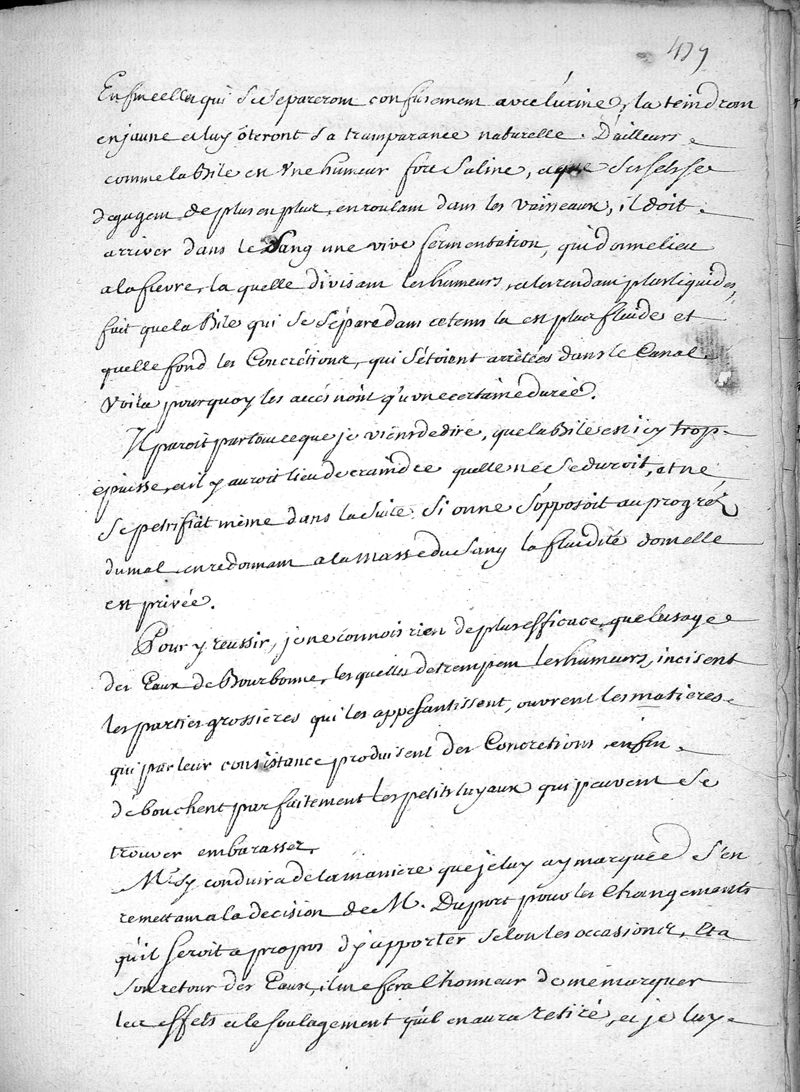 479
Enfin celles qui se separeront confusement avec l'urine, la teindront
en jaune et luy ôteront sa transparance naturelle. D'ailleurs
comme la Bile est Une humeur fort Saline, et que ses sels se
degagent de plus en plus, en roulant dans les vaisseaux, il doit
arriver dans le Sang une vive fermentation, qui donne lieu
a la fievre, la quelle divisant les humeurs, et les rendant plus liquides,
fait que la Bile qui se sépare dans ce tems la est plus fluide et
quelle fond les Concrétions, qui s'étoient arrêtées dans le Canal.
Voila pourquoy les accés n'ont qu'une certaine durée.
Il paroit par tout ce que je viens de dire, que la Bile est icy trop
epaisse, et il y auroit lieu de craindre quelle ne se durcit, et ne
se petrifiât même dans la suite si on ne s'opposoit au progréz
du mal en redonnant a la masse du Sang la fluidité dont elle
est privée.
Pour y reussir, je ne connois rien de plus efficace, que l'usage
des Eaux de Bourbonne, les quelles detrempent les humeurs, incisent
les parties grossieres qui les appesantissent, ouvrent les matieres
qui par leur consistance produisent des Concretions enfin
débouchent parfaitement les petits tuyaux qui peuvent se
trouver embarassez.
Mr. S'y conduira de la maniere que je luy ay marquée S'en
remettant a la decision de M. Duport pour les Changements
qu'il seroit a propos d'y apporter selon les occasions, Et a
son retour des Eaux, il me fera l'honneur de me marquer
les effets et le soulagement qu'il en aura retiré, et je luy